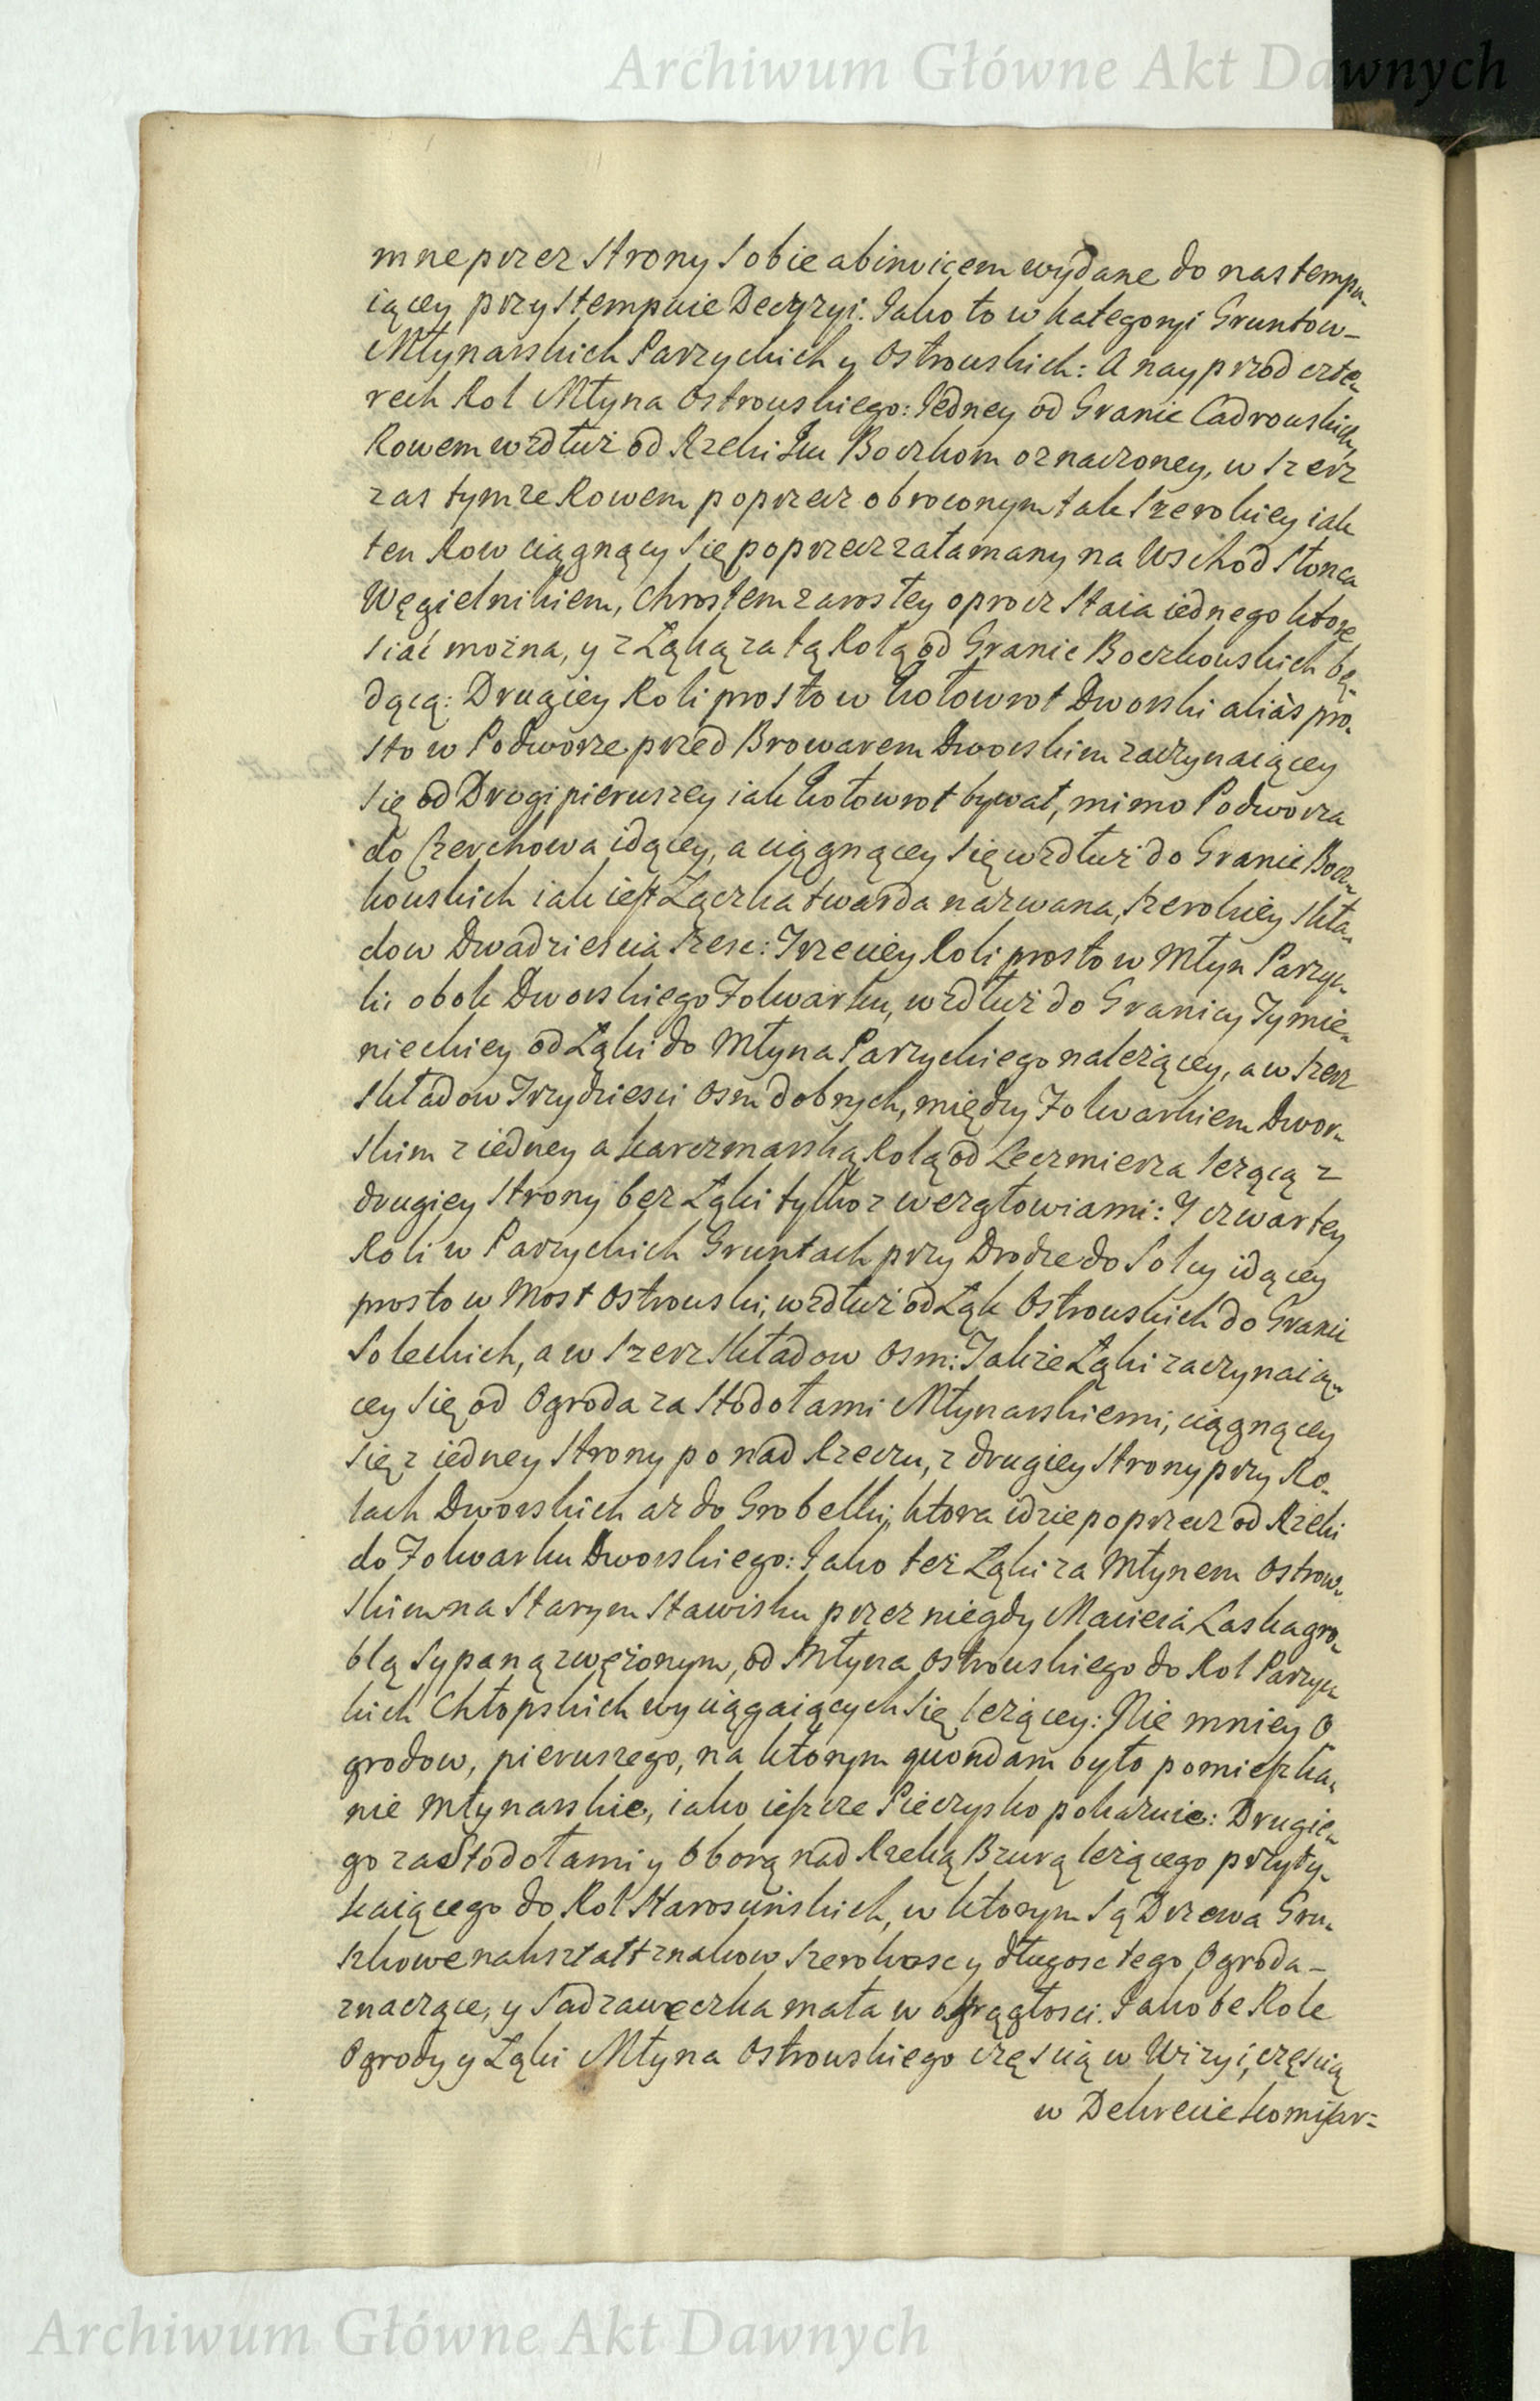 Archiwum Główne Akt Dawnych
mne przez Strony Sobie abinvicem wydane do nastempu-
iący przystempuie Decyzyi: Jako to w kategoryi Gruntow-
Młynarskich Parzyckich y Ostrowskich: A nayprzod czte-
rech Rol Młyna Ostrowskiego: Jedney od Granic Cadrowskich
Rowem wzdłuż od Rzeki ku Boczkom oznaczoney, w szerz
zas tymze Rowem poprzecz obroconym tak szerokiey iak
ten Row ciągnący się poprzecz załamany na Wschod Słonca
Węgielnikiem, Chrostem zarostey oprocz Staia iednego ktore
siać można, y z Łąką za tą Rolą od Granic Boczkowskich bę-
dącą: Drugiey Roli prosto w kołowrot Dworski aliàs pro-
sto w Podworze przed Browarem Dworskim zaczynaiący
się od Drogi pierwszey iak kołowrot bywał, mimo Podworza
do Czerchowa idącey, a ciągnącey się wzdłuż do Granic Bocz-
kowskich iak iest Łączka twarda nazwana, szerokiey Skła-
dow Dwadziescia szesc: Trzeciey Roli prosto w Młyn Parzyc-
ki obok Dworskiego Folwarku, wzdłuż do Granicy Tymie-
nieckiey od Łąki do Młyna Parzyckiego należącey, a w szerz
Składow Trzydziesci Osm dobrych, między Folwarkiem Dwor-
skim z iedney a karczmarską Rolą od Leczmierza leżącą z
drugiey Strony bez Łąki tylko z wezgłowiami: Y czwartey
Roli w Parzyckich Gruntach przy Drodze do Solcy idącey
prosto w Most Ostrowski, wzdłuż od Łąk Ostrowskich do Granic
Soleckich, a w szerz Składow Osm: Takze Łąki zaczynaią-
cey się od Ogroda za Stodołami Młynarskiemi, ciągnącey
się z iedney Strony ponad Rzeczu, z drugiey Strony przy Ro-
lach Dworskich az do Grobelki, ktora idzie poprzecz od Rzeki
do Folwarku Dworskiego: Jako też Łąki za Młynem Ostrow-
skim na Starym Stawisku przez niegdy Macieia Laska gro-
blą sypaną zwężonym, od Młyna Ostrowskiego do Rol Parzyc-
kich Chłopskich wyciągaiących się leżącey: Nie mniey O-
grodow, pierwszego, na ktorym quondam było pomieszka-
nie Młynarskie, iako ieszcze Pieczysko pokazuie: Drugie-
go za Stodołami y Oborą nad Rzeką Bzurą leżącego przyty-
kaiącego do Rol Starościńskich, w ktorym są Drzewa Gru-
szkowe nakształt znakow szerokosc y długosc tego Ogroda-
znaczące, y Sadzaweczka mała w okrągłosci. Jakobe Role
Ogrody y Łąki Młyna Ostrowskiego częscią w Wizyi, częscią
w Dekrecie komissar=
Archiwum Główne Akt Dawnych